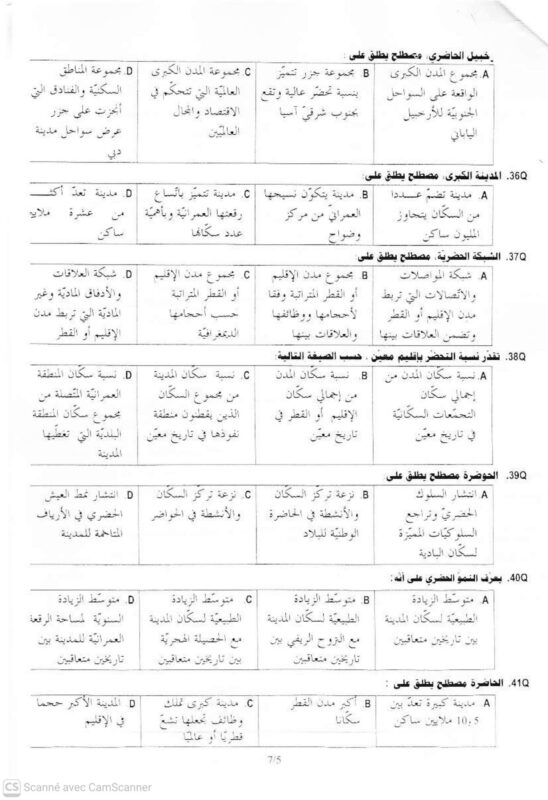 خبيل الحاضري، مصطلح يطلق على :
A. مجموع المدن الكبرى الواقعة على السواحل الجنوبية للأرخبيل الياباني
B. مجموعة جزر تتميّز بنسبة تحضّر عالية وتقع بجنوب شرقيّ آسيا
C. مجموعة المدن الكبرى العالميّة التي تتحكّم في الاقتصاد والمجال العالميّين
D. مجموعة المناطق السكنيّة والفنادق التي أنجزت على جزر عرض سواحل مدينة دبي
36Q. المدينة الكبرى، مصطلح يطلق على:
A. مدينة تضمّ عددا من السكّان يتجاوز المليون ساكن
B. مدينة يتكوّن نسيجها العمرانيّ من مركز وضواح
C. مدينة تتميّز باتّساع رقعتها العمرانيّة وبأهميّة عدد سكّانها
D. مدينة تعدّ أكثـ من عشرة ملايين ساكن
37Q. الشبكة الحضريّة، مصطلح يطلق على
A. شبكة المواصلات والاتّصالات التي تربط مدن الإقليم أو القطر وتضمن العلاقات بينها
B. مجموع مدن الإقليم أو القطر المتراتبة وفقا لأحجامها ووظائفها والعلاقات بينها
C. مجموع مدن الإقليم أو القطر المتراتبة حسب أحجامها الديمغرافيّة
D. شبكة العلاقات والأدفاق الماديّة وغير الماديّة التي تربط مدن الإقليم أو القطر
38Q. تقدّر نسبة التحضّر بإقليم معيّن ، حسب الصيغة التالية:
A. نسبة سكّان المدن من إجمالي سكان التجمّعات السكّانيّة في تاريخ معيّن
B. نسبة سكّان المدن من إجمالي سكّان الإقليم أو القطر في تاريخ معيّن
C. نسبة سكّان المدينة من مجموع السكّان الذين يقطنون منطقة نفوذها في تاريخ معيّن
D. نسبة سكّان المنطقة العمرانيّة المتّصلة من مجموع سكّان المنطقة البلديّة التي تغطّيها المدينة
39Q. الحوضرة مصطلح يطلق على
A. انتشار السلوك الحضريّ وتراجع السلوكيّات المميّزة لسكّان البادية
B. نزعة تركّز السكّان والأنشطة في الحاضرة الوطنيّة للبلاد
C. نزعة تركّز السكّان والأنشطة في الحواضر
D. انتشار نمط العيش الحضري في الأرياف المتاخمة للمدينة
40Q. يعرّف النموّ الحضري على أنّه:
A. متوسّط الزيادة الطبيعيّة لسكّان المدينة بين تاريخين متعاقبين
B. متوسّط الزيادة الطبيعيّة لسكّان المدينة مع النزوح الريفي بين تاريخين متعاقبين
C. متوسّط الزيادة الطبيعيّة لسكّان المدينة مع الحصيلة الهجريّة بين تاريخين متعاقبين
D. متوسّط الزيادة السنويّة لمساحة الرقعة العمرانيّة للمدينة بين تاريخين متعاقبين
41Q. الحاضرة مصطلح يطلق على :
A. مدينة كبيرة تعدّ بين 5 و10 ملايين ساكن
B. أكبر مدن القطر سكّانا
C. مدينة كبرى تملك وظائف تجعلها تشعّ قطريّا أو عالميّا
D. المدينة الأكبر حجما في الإقليم
7/5
CS Scanné avec CamScanner